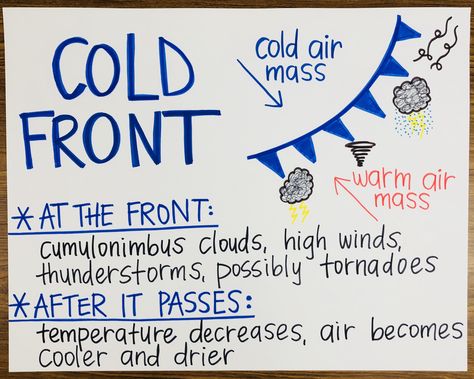 COLD
FRONT
cold air
mass
warm air
mass
*AT THE FRONT:
cumulonimbus clouds, high winds,
thunderstorms, possibly tornadoes
*AFTER IT PASSES:
temperature decreases, air becomes
cooler and drier